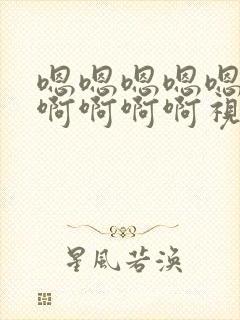 嗯嗯嗯嗯嗯
啊啊啊啊視
星風若渙